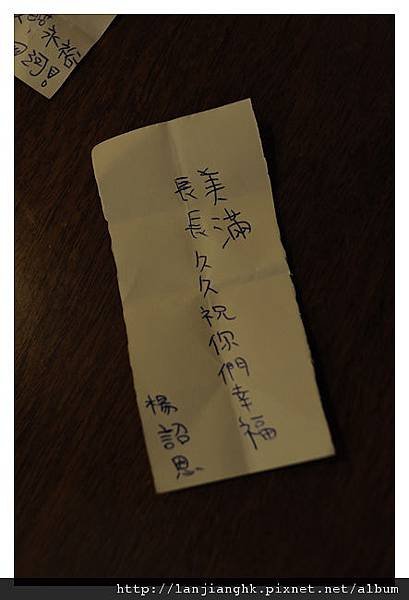 美滿
長長久久祝你們幸福
楊詔恩
http://lanjianghk.pixnet.net/album